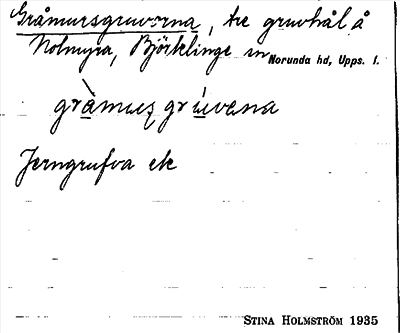 Gråmursgruvorna, tre gruvhål å
Nolmyra, Björklinge sn Norunda hd, Upps. l.
gràmusgrúvena
Jerngrufva etc
STINA HOLMSTRÖM 1935